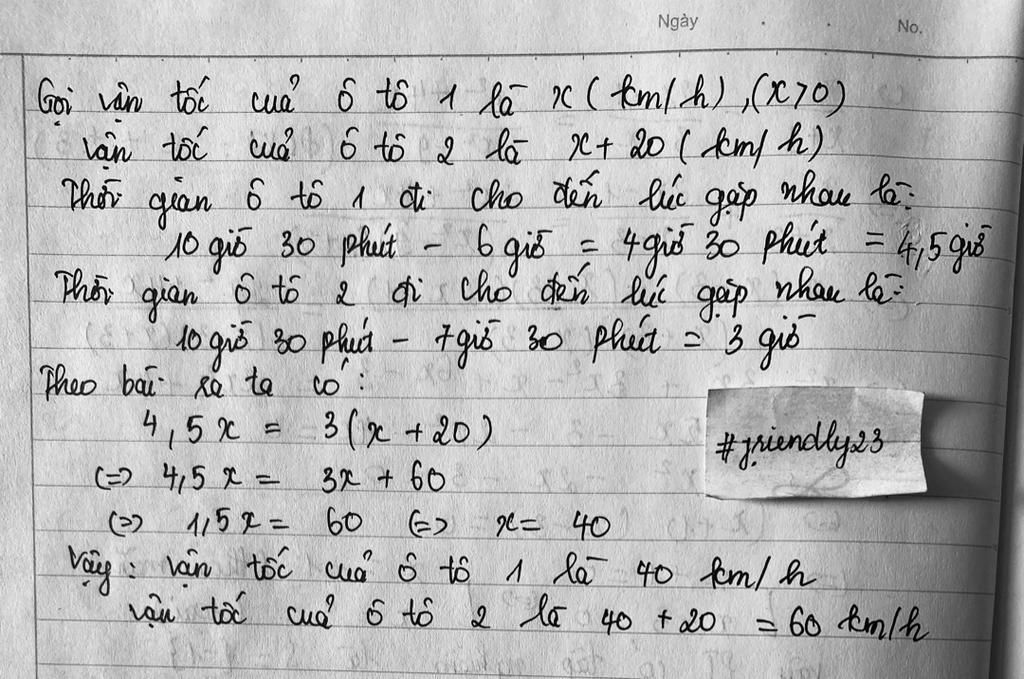 Ngày
No.
Gọi vận tốc của ô tô 1 là x (km/h), (x>0)
vận tốc của ô tô 2 là x + 20 (km/h)
Thời gian ô tô 1 đi cho đến lúc gặp nhau là:
10 giờ 30 phút - 6 giờ = 4 giờ 30 phút = 4,5 giờ
Thời gian ô tô 2 đi cho đến lúc gặp nhau là:
10 giờ 30 phút - 7 giờ 30 phút = 3 giờ
Theo bài ra ta có:
4,5x = 3(x + 20)
#friendly23
(=) 4,5x = 3x + 60
(=) 1,5x = 60 (=) x = 40
Vậy: vận tốc của ô tô 1 là 40 km/h
vận tốc của ô tô 2 là 40 + 20 = 60 km/h